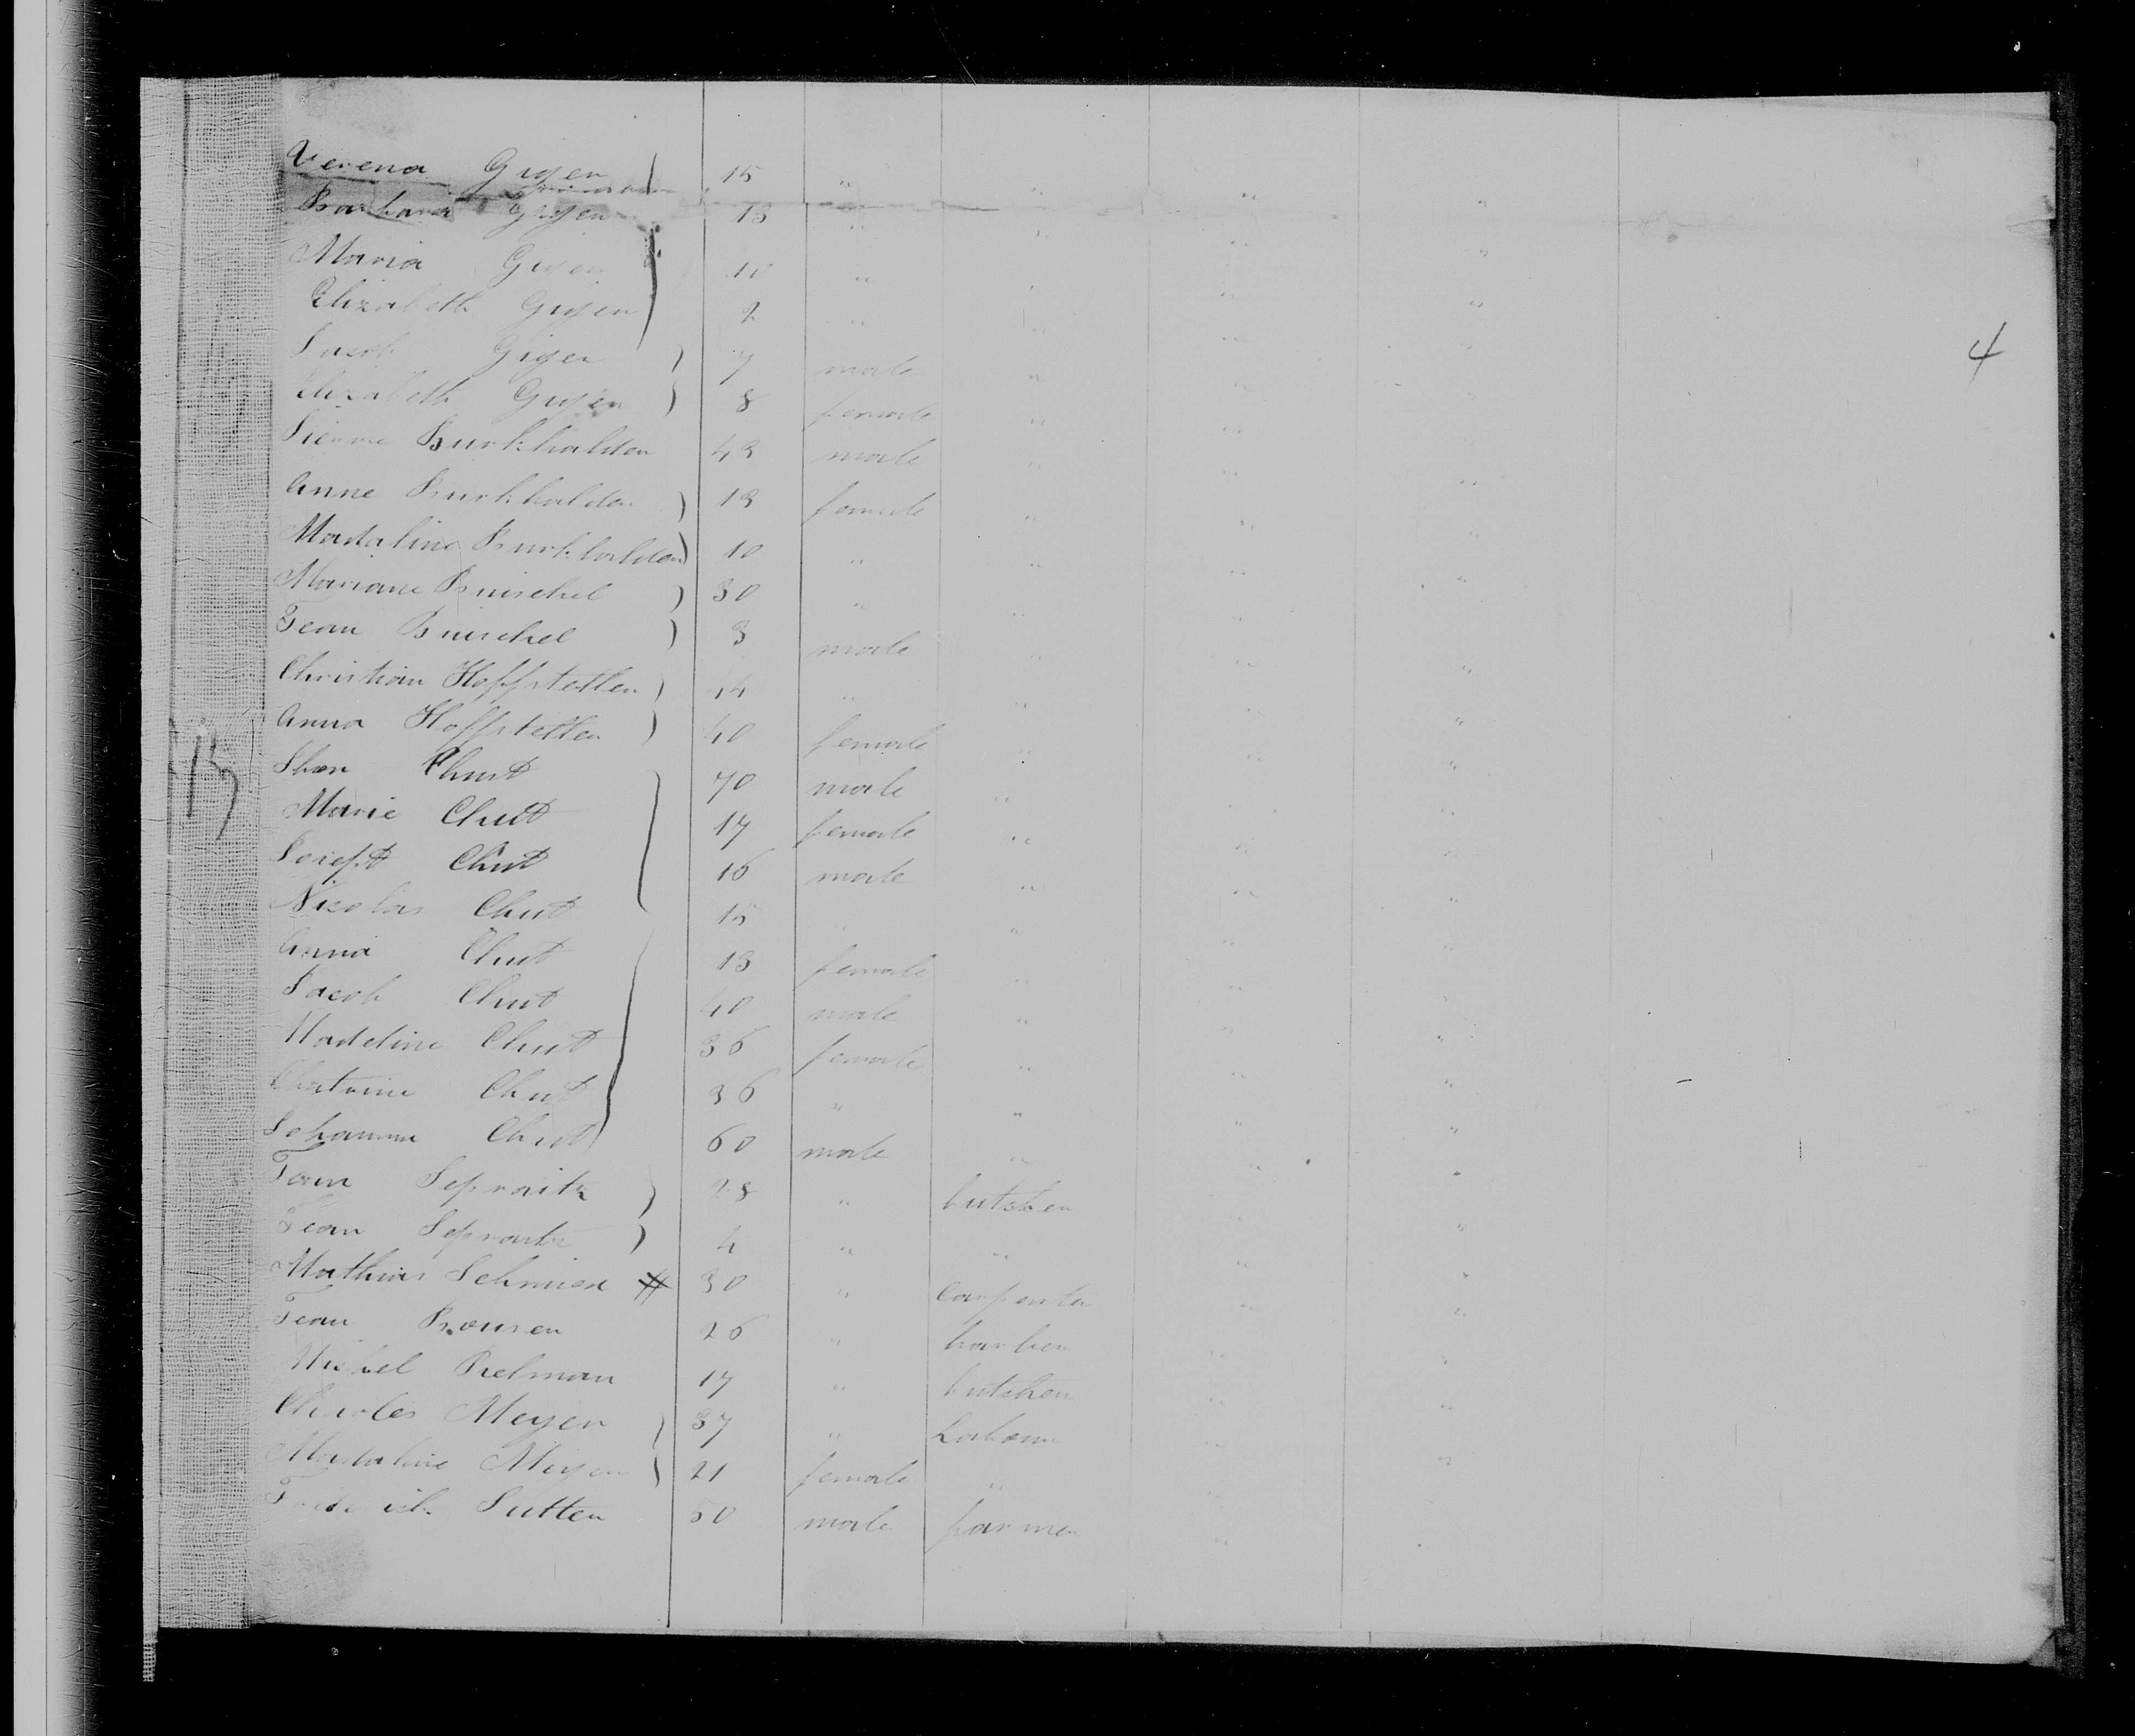 Verena Gigen 15 " " " "
Barbara Gigen 13 " " " "
Maria Gigen 10 " " " "
Elizabeth Gigen 2 " " " "
4
Jacob Gigen 7 male " " "
Elizabeth Gigen 8 female " " "
Pierre Burkhalden 43 male " " "
Anne Burkhalden 13 female " " "
Madaline Burkhalden 10 " " " "
Mariane Buischel 30 " " " "
Jean Buischel 3 male " " "
Christian Hoffstetten 14 " " " "
Anna Hoffstetten 40 female " " "
Chust 70 male " " "
Marie Chust 17 female " " "
Joseph Chust 16 male " " "
Nicolas Chust 15 " " " "
Anna Chust 13 female " " "
Jacob Chust 40 male " " "
Madeline Chust 36 female " " "
Chust 36 " " " "
Johannn Chust 60 male " " "
Jean 28 " butshen " "
Jean 4 " " " "
Mathias 30 " Carpenter " "
Jean 26 " barben " "
Michel Pelman 17 " butchen " "
Charles Meyen 37 " " "
Madaline Meyen 21 female " " "
Frederick Sutten 50 male farmer "